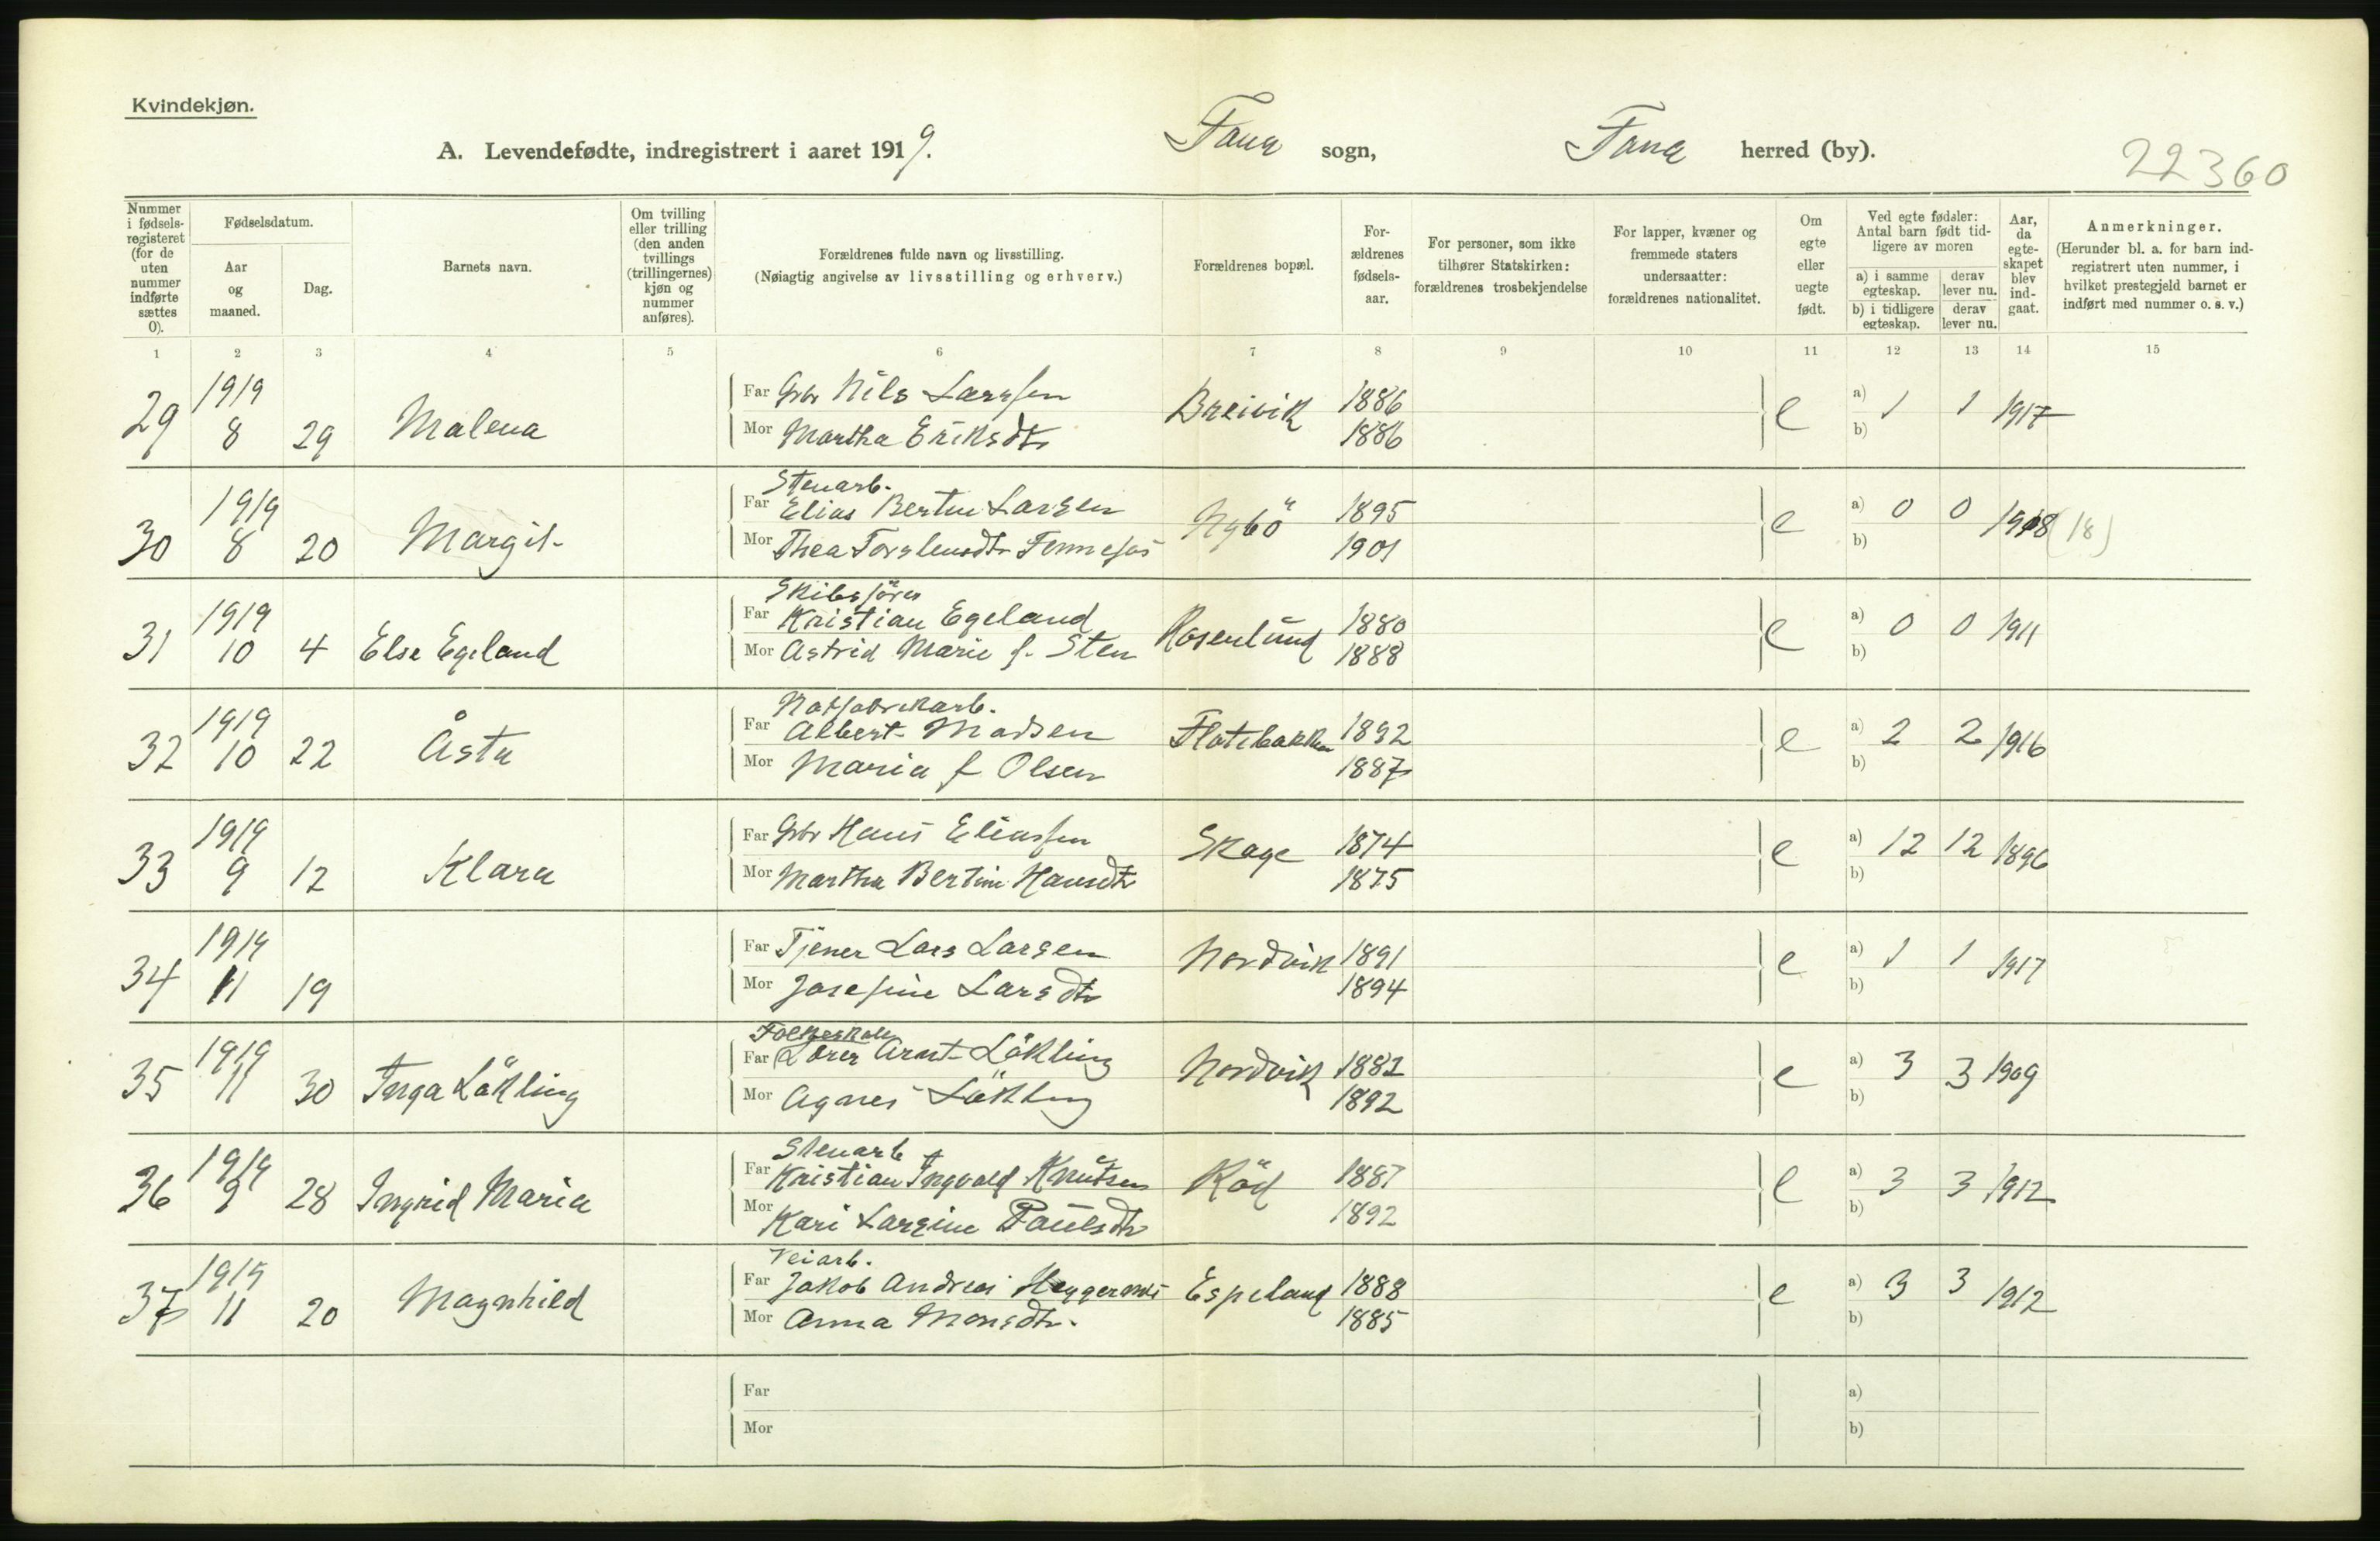 Kvindekjøn.
A. Levendefødte, indregistrert i aaret 1919. Fana sogn, Fana herred (by).
22360
Nummer i fødselsregisteret (for de uten nummer indførte sættes 0).
Fødselsdatum.
Aar og maaned.
Dag.
Barnets navn.
Om tvilling eller trilling (den anden tvillings (trillingernes) kjøn og nummer anføres).
Forældrenes fulde navn og livsstilling.
(Nøiagtig angivelse av livsstilling og erhverv.)
Forældrenes bopæl.
Forældrenes fødselsaar.
For personer, som ikke tilhører Statskirken: forældrenes trosbekjendelse
For lapper, kvæner og fremmede staters undersaatter: forældrenes nationalitet.
Om egte eller uegte født.
Ved egte fødsler: Antal barn født tidligere av moren
a) i samme egteskap. derav lever nu.
b) i tidligere egteskap. derav lever nu.
Aar, da egteskapet blev indgaat.
Anmerkninger.
(Herunder bl. a. for barn indregistrert uten nummer, i hvilket prestegjeld barnet er indført med nummer o. s. v.)
1 2 3 4 5 6 7 8 9 10 11 12 13 14 15
29 1919 8 29 Malena Far Gbr Nils Larssen Breivik 1886 e a) 1 1 1917
Mor Martha Eriksdtr 1886 b)
Stenarb.
30 1919 8 20 Margit Far Elias Bertin Larsen Nybö 1895 e a) 0 0 1918 (18)
Mor Thea 1901 b)
Skibsförer
31 1919 10 4 Else Egeland Far Kristian Egeland Rosenlund 1880 e a) 0 0 1911
Mor Astrid Marie f. Sten 1888 b)
Notfabrikarb.
32 1919 10 22 Åsta Far Albert Madsen Flatebakken 1892 e a) 2 2 1916
Mor Maria f Olsen 1887 b)
33 1919 9 12 Klara Far Gbr Hans Eliassen Skage 1874 e a) 12 12 1896
Mor Martha Bertine Hansdtr 1875 b)
34 1919 11 19 Far Tjener Lars Larsen Nordvik 1891 e a) 1 1 1917
Mor Josefine Larsdtr 1894 b)
Folkeskole
35 1919 11 30 Inga Lökling Far Lærer Arnt Lökling Nordvik 1882 e a) 3 3 1909
Mor Agnes Lökling 1892 b)
Stenarb
36 1919 9 28 Ingrid Maria Far Kristian Ingvald Knutsen Röd 1887 e a) 3 3 1912
Mor Kari Larsine Paulsdtr 1892 b)
Veiarb.
37 1919 11 20 Magnhild Far Jakob Andreas Espeland 1888 e a) 3 3 1912
Mor Anna Monsdtr. 1885 b)
Far a)
Mor b)